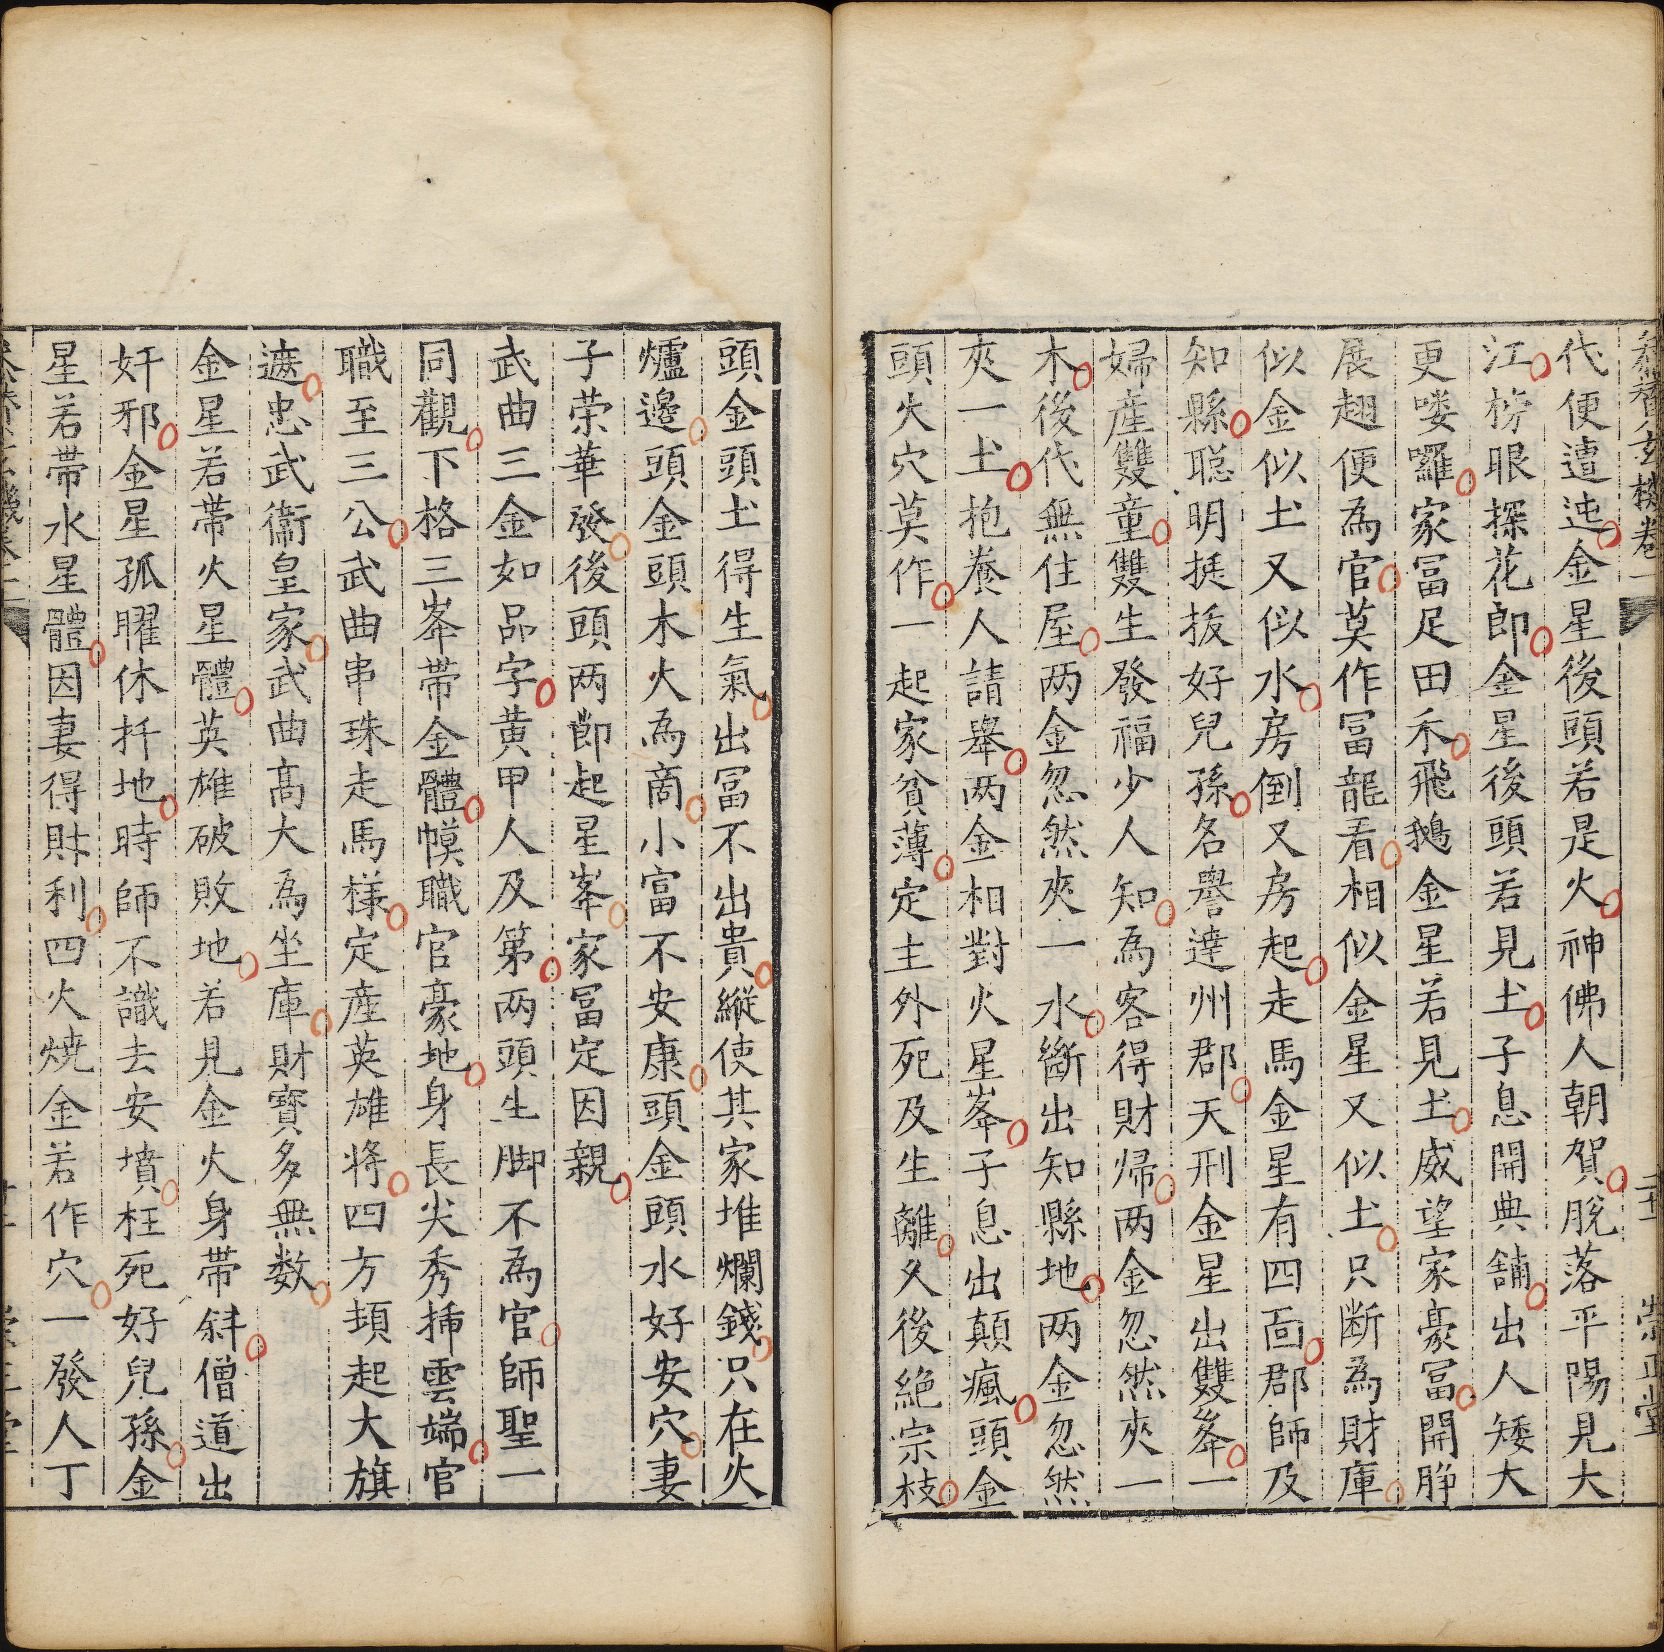 代便遭迍金星後頭若是火神佛人朝賀脫落平陽見大
江榜眼探花郎金星後頭若見土子息開典舖出人矮大
更喽囉家冨足田禾飛鵝金星若見土威望家豪冨開脝
展翅便為官莫作冨龍看相似金星又似土只断為財庫
似金似土又似水房倒又房起走馬金星有四面郡師及
知縣聡明挺拔好兒孫名譽達州郡天刑金星出雙峯一
婦産雙童雙生發福少人知為客得財帰两金忽然夾一
木後代無住屋两金忽然夾一水斷出知縣地两金忽然
夾一土抱養人請舉两金相對火星峯子息出顛瘋頭金
頭火穴莫作一起家貧薄定主外死及生離久後絶宗枝
頭金頭土得生氣出冨不出貴縱使其家堆爛錢只在火
爐邊頭金頭木火為啇小富不安康頭金頭水好安穴妻
子荣華發後頭两節起星峯家冨定因親
武曲三金如品字黄甲人及第两頭生脚不為官師聖一
同觀下格三峯帯金體幞職官豪地身長尖秀揷雲端官
職至三公武曲串珠走馬樣定産英雄将四方頭起大旗
遮忠武衞皇家武曲髙大為坐庫財寳多無数
金星若帯火星體英雄破敗地若見金火身帯斜僧道出
奸邪金星孤曜休扦地時師不識去安墳枉死好兒孫金
星若帯水星體因妻得財利四火焼金若作穴一發人丁